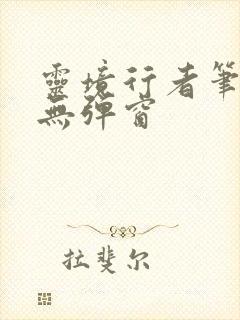 靈境行者筆
無彈窗
拉斐尔